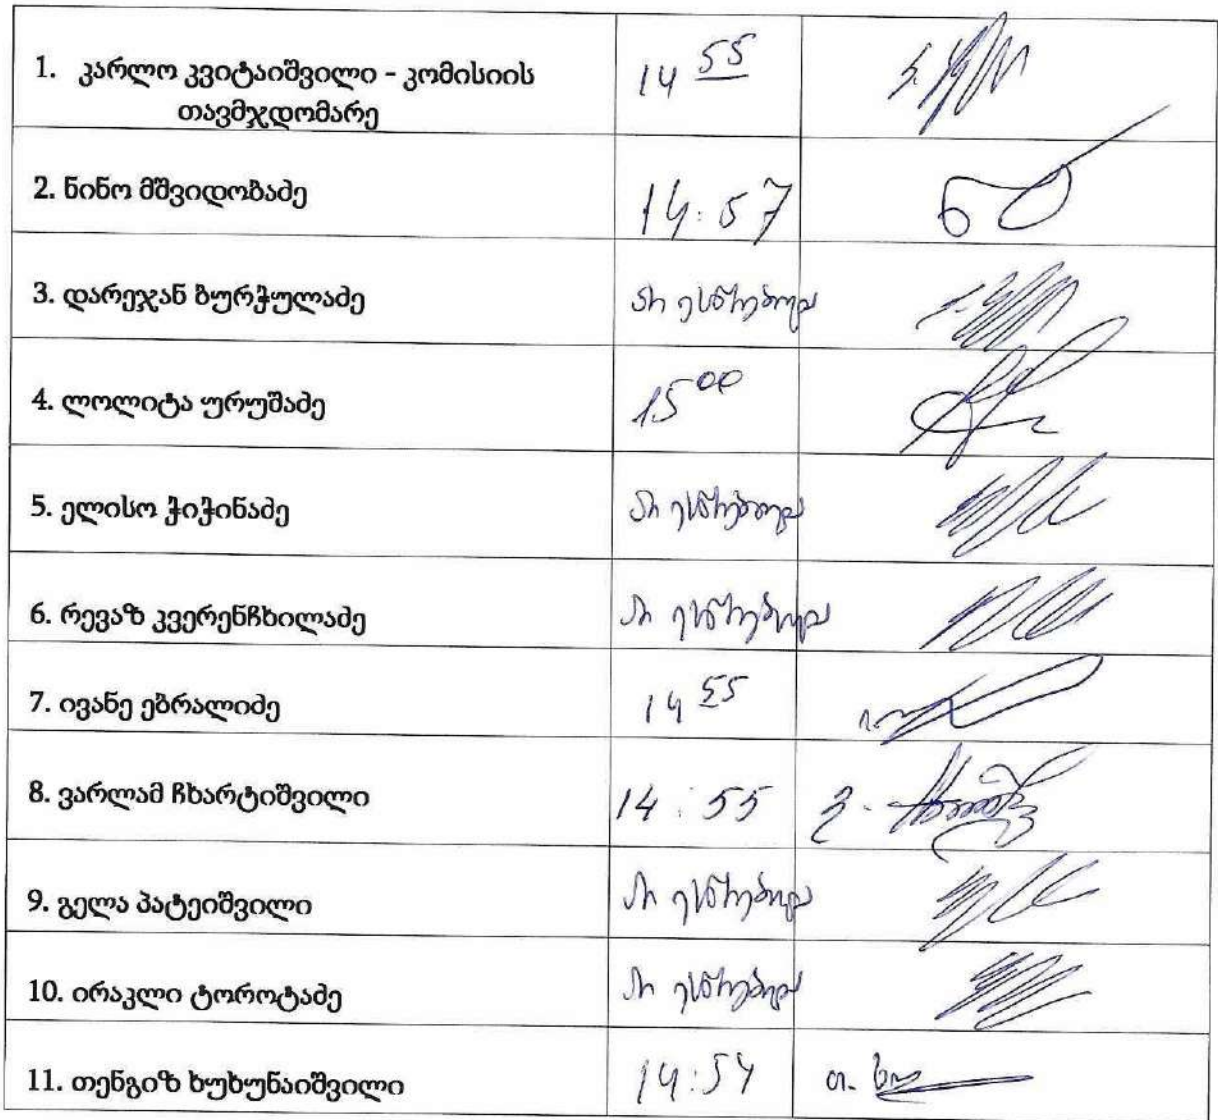 1. კარლო კვიტაიშვილი - კომისიის
თავმჯდომარე
14 55
2. ნინო მშვიდობაძე
14:57
3. დარეჯან ბურჭულაძე
არ ესწრებოდა
4. ლოლიტა ურუშაძე
15 00
5. ელისო ჭიჭინაძე
არ ესწრებოდა
6. რევაზ კვერენჩხილაძე
არ ესწრებოდა
7. ივანე ებრალიძე
14 55
8. ვარლამ ჩხარტიშვილი
14:55
9. გელა პატეიშვილი
არ ესწრებოდა
10. ირაკლი ტოროტაძე
არ ესწრებოდა
11. თენგიზ ხუხუნაიშვილი
14:54